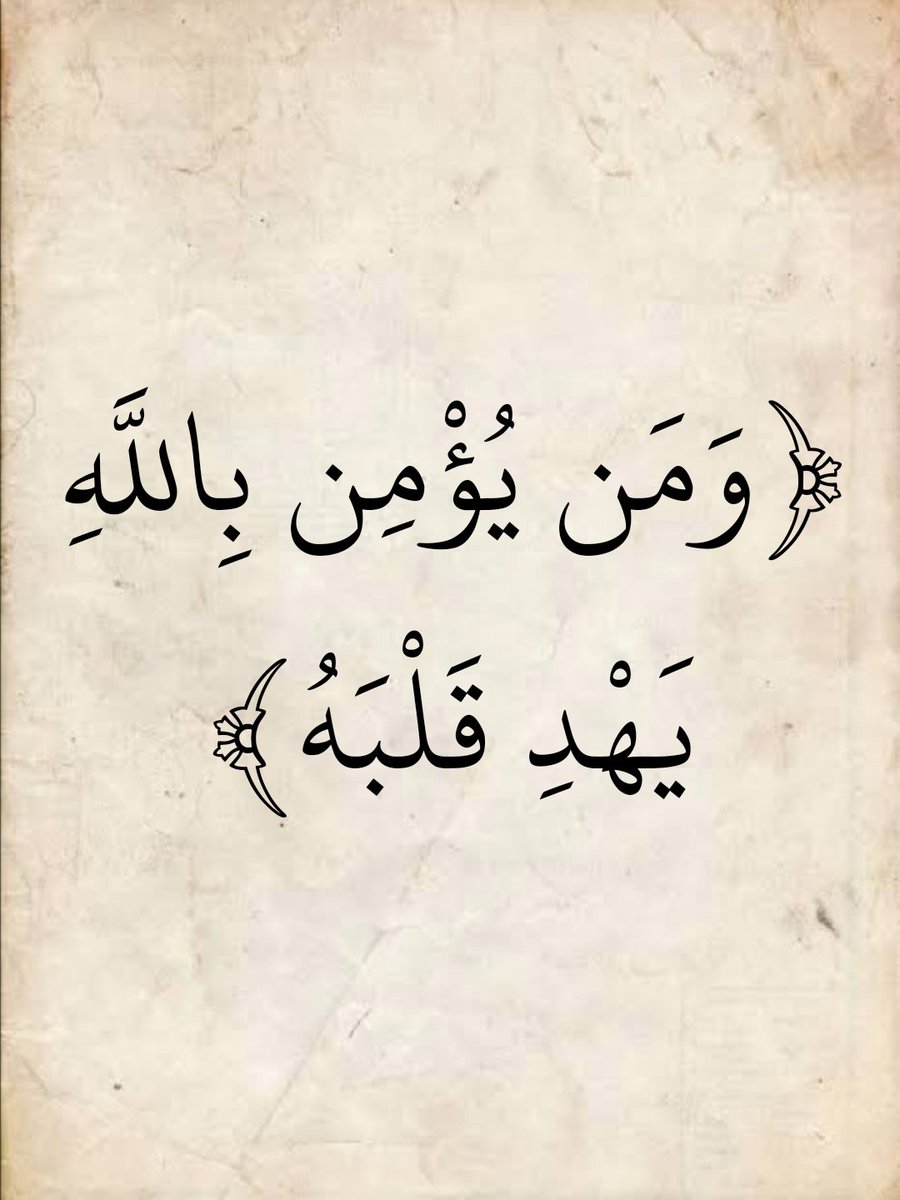 ﴿وَمَن يُؤْمِن بِاللَّهِ
يَهْدِ قَلْبَهُ﴾